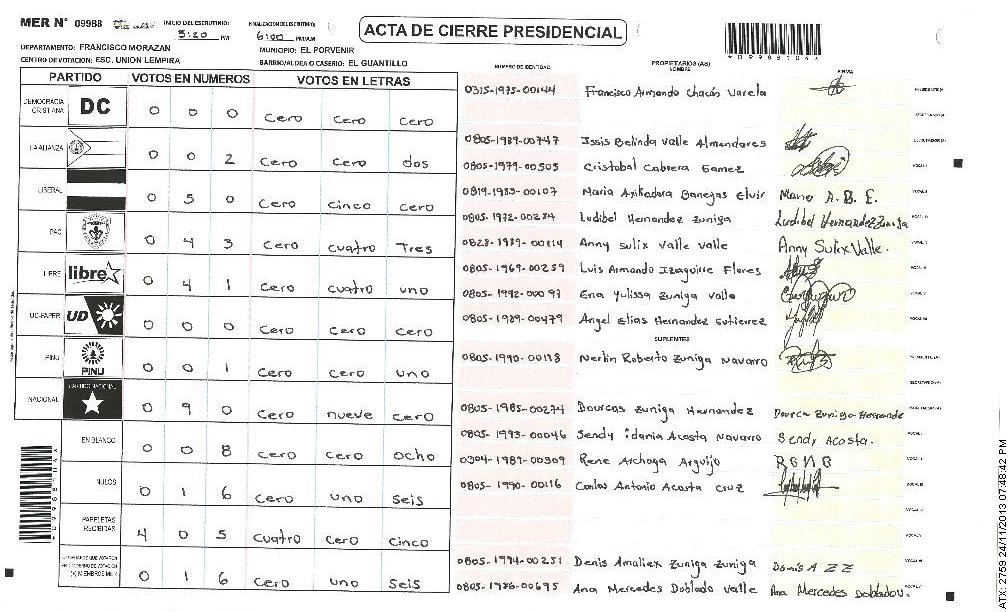 MER N° 09988 INICIO DEL ESCRUTINIO: 5:20 PM FINALIZACION DEL ESCRUTINIO: 6:00 PM/AM
ACTA DE CIERRE PRESIDENCIAL
DEPARTAMENTO: FRANCISCO MORAZAN MUNICIPIO: EL PORVENIR
CENTRO DE VOTACION: ESC. UNION LEMPIRA BARRIO/ALDEA O CASERIO: EL GUANTILLO
PARTIDO VOTOS EN NUMEROS VOTOS EN LETRAS
DEMOCRACIA CRISTIANA DC 0 0 0 cero cero cero
LA ALIANZA 0 0 2 cero cero dos
LIBERAL 0 5 0 cero cinco cero
PAC 0 4 3 cero cuatro Tres
LIBRE libre 0 4 1 cero cuatro uno
UD-FAPER UD 0 0 0 cero cero cero
PINU PINU 0 0 1 cero cero uno
NACIONAL PARTIDO NACIONAL 0 9 0 cero nueve cero
EN BLANCO 0 0 8 cero cero ocho
NULOS 0 1 6 cero uno seis
PAPELETAS RECIBIDAS 4 0 5 cuatro cero cinco
0 1 6 cero uno seis
NUMERO DE IDENTIDAD PROPIETARIOS (AS) NOMBRE FIRMA
0315-1975-00144 Francisco Armando Chacón Varela
0805-1989-00747 Issis Belinda Valle Almendares
0805-1979-00505 Cristobal Cabrera Gamez
0819-1983-00107 Maria Banegas Elvir Maria A. B. E.
0805-1972-00284 Ludibel Hernandez Zuniga Ludibel Hernandez Zuniga
0828-1989-00114 Anny sulix Valle Valle Anny Sulix Valle.
0805-1969-00259 Luis Armando Izaguirre Flores
0805-1992-00097 Ena Yulissa Zuniga Valle
0805-1989-00479 Angel Elias Hernandez Gutierrez
SUPLENTES
0805-1990-00138 Nerlin Roberto Zuniga Navarro
0805-1985-00274 Dourcas Zuniga Hernandez
0805-1993-00046 Sendy idania Acosta Navarro Sendy Acosta.
0304-1987-00309 Rene Archaga Arguijo
0805-1990-00116 Carlos Antonio Acosta Cruz
0805-1994-00251 Denis Zuniga Zuniga Denis A Z Z
0805-1986-00695 Ana Mercedes Doblado Valle Ana Mercedes Doblado V.
ATX: 2759 24/11/2013 07:48:42 PM